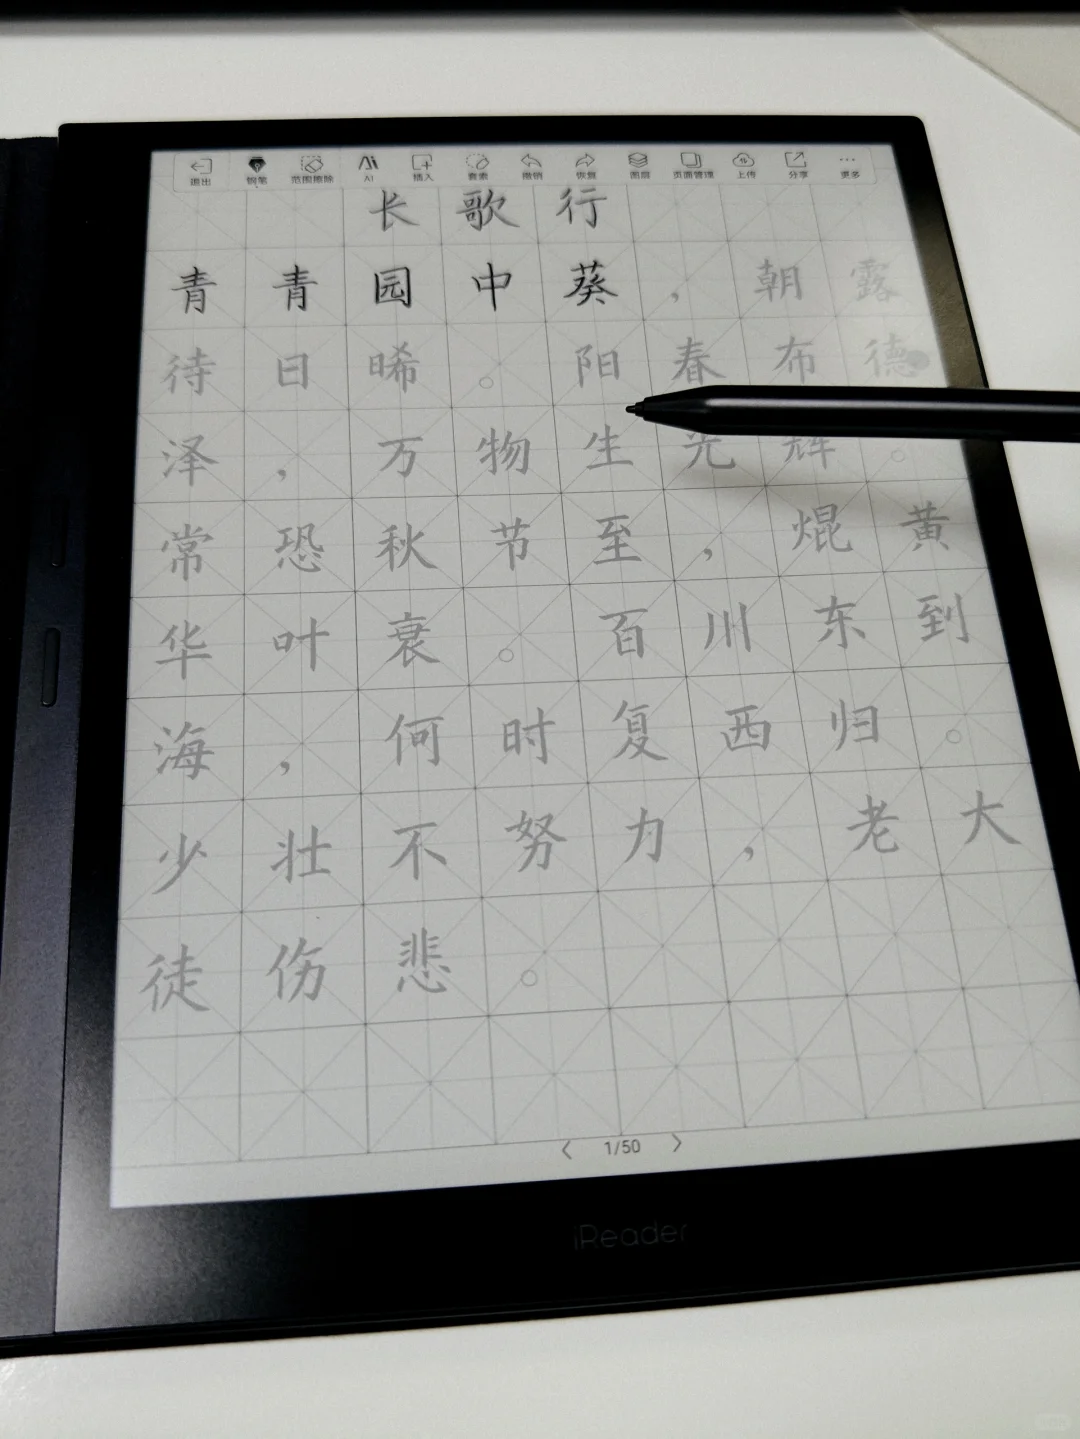 退出 钢笔 范围擦除 AI 插入 套索 撤销 恢复 图层 页面管理 上传 分享 更多
长歌行
青青园中葵，朝露
待日晞。阳春布德
泽，万物生光辉。
常恐秋节至，焜黄
华叶衰。百川东到
海，何时复西归。
少壮不努力，老大
徒伤悲。
1/50
iReader